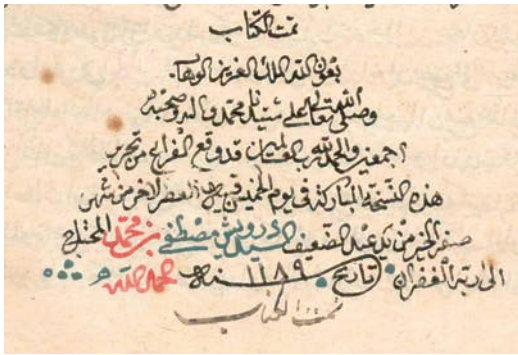 تمت الكتاب
بعون الله الملك العزيز الوهاب
وصلى الله تعالى على سيدنا محمد واله وصحبه
اجمعين والحمد لله رب العالمين قد وقع الفراغ من تحرير
هذه النسخة المباركة في يوم الخميس العصر الاخر من شهر
صفر الخير من يد عبد الضعيف السيد درويش مصطفى بن محمد المحتاج
الى ربه الغفران تاريخ سنة ١١٨٩
تمت الكتاب